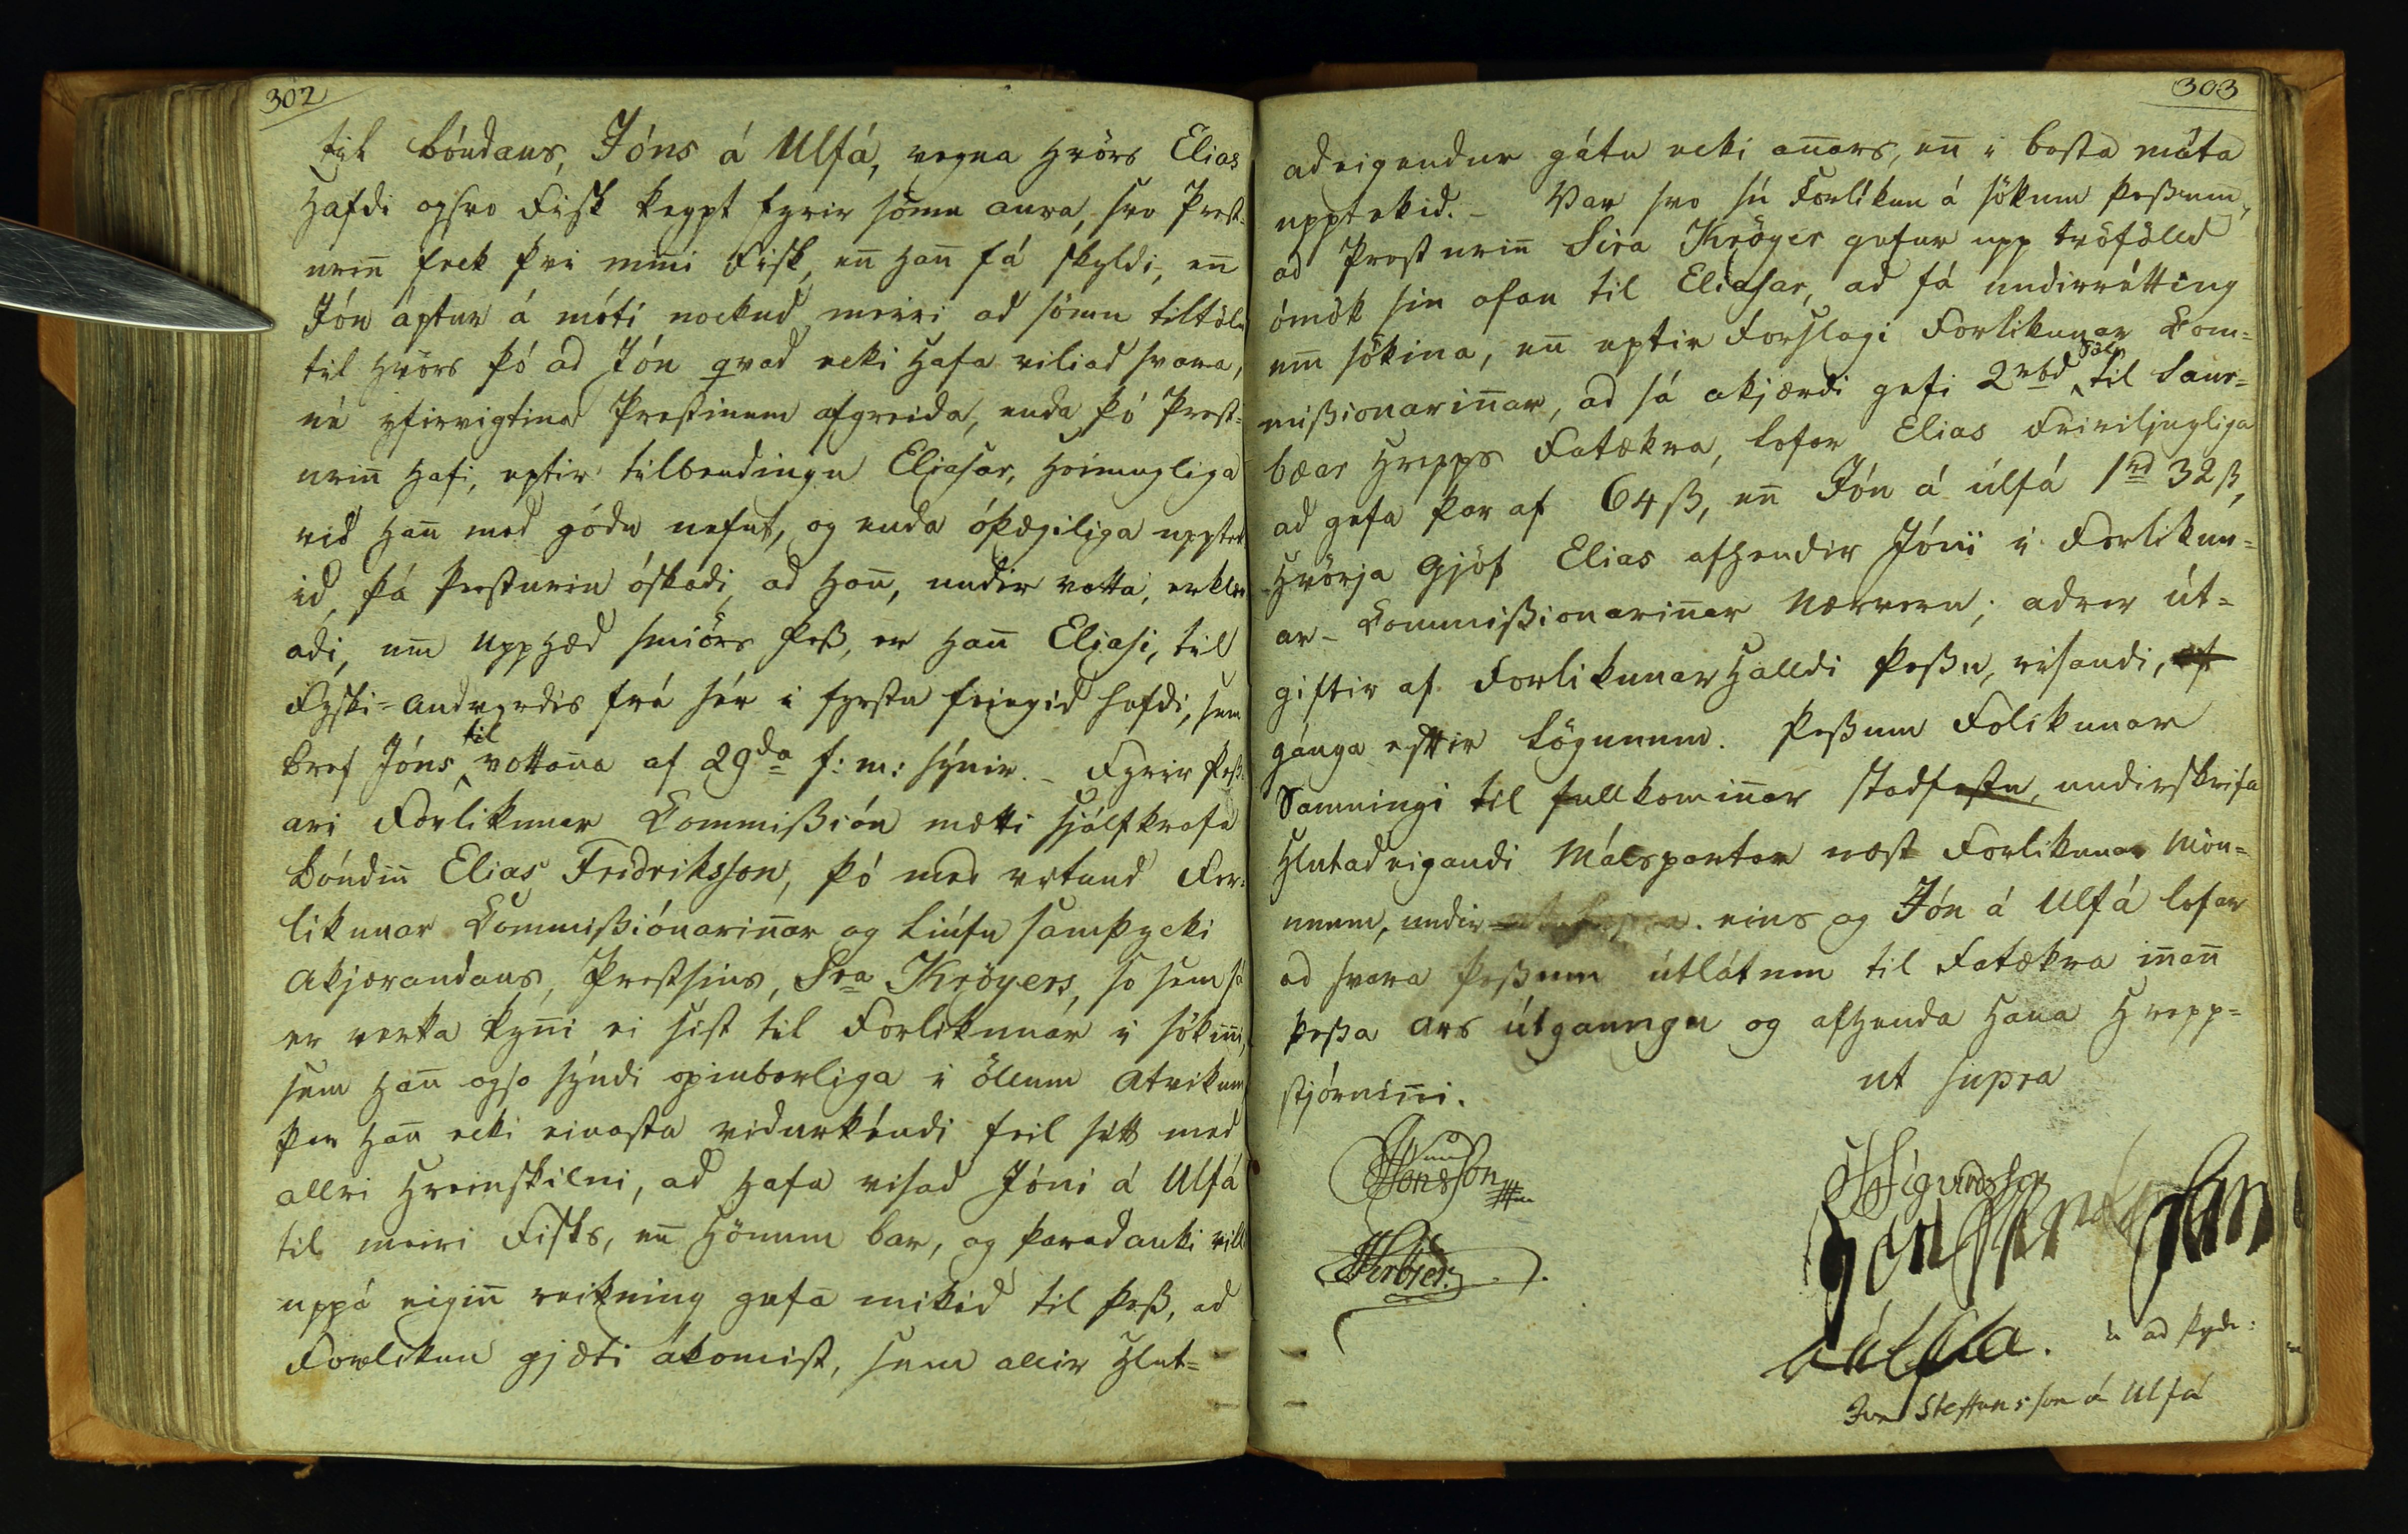 302
bóndans, Jóns á Ulfá, vegna hvörs Elias
hafdi ogsvo Fisk keypt fyrir sömu aura, svo Prest-
urin̄ feck þvi mīni Fisk, en̄ han̄ fá skyldi, en̄
Jón aptur á móti nockud meiri, ad sömu tiltölu
til hvörs þó ad Jón qvad ecki hafa viliad svara,
né yfirvigtina Prestinum afgreida, enda þó Prest-
urin̄ hafi, eptir tilbendingu Eliasar, heimugliga
vid han̄ med gódu nefnt, og enda óþægiliga upptek
id, þá Presturin óskadi, ad han̄, undir votta, erklær
adi, um̄ upphæd smiörs þeß, er han̄ Eliasi, til
Fyski-andvyrdis frá sér i fyrstu feingid hafdi, sem
bref Jóns til vottan̄a af 29da f: m: sýnir. - Fyrir þeß-
ari Forlikunar Commißión mætti sjálfkrafa
bóndin̄ Elias Fridriksson, þó med vitund For-
likunar Commißiónarin̄ar og liúfu samþycki
Akjærandans, Prestsins, Sra Kröyers, so sem sá
er verka kyn̄i ei sist til Forlikunar i sökin̄i,
sem han̄ ogso sýndi opinberliga i öllum Atvikum
þar han̄ ecki einasta vidurkéndi feil sitt med
allri hreinskilni, ad hafa visad Jóni á Ulfá
til meiri Fisks, en̄ hönum bar, og þaradauki vill
uppá eigin̄ reikning gefa mikid til þeß, ad
Forlikun gjæti ákomist, sem allir hlut-
303
adeigendur gátu ecki an̄ars, en̄ i besta máta
upptekid. - Var svo sú Forlikun á sökum þeßum,
ad Presturin̄ Sira Kröyer gefur upp tvöföllld
ómök sin ofan til Eliasar, ad fá undirrétting
um̄ sökina, en̄ eptir Forslagi Forlikunar Com-
mißionarin̄ar, ad sá akjærdi gefi 2rbd til Saur-
bæar Hrepps Fatækra, lofar Elias Friviljugliga
ad gefa þar af 64 ß, en̄ Jón á úlfá 1rd 32 ß,
hvörja Gjöf Elias afhendir Jóni i Forlikun-
ar-Commißionarin̄ar Nærveru; adrar út-
giftir af Forlikunar halldi þeßu, risandi,
gánga eftir Lögunum. Þeßum Folikunar
Samningi til fullkomin̄ar stadfestu, undirskrifa
hlutadeigandi Málspartar næst Forlikunar Mön-
unum, undir eins og Jón á Ulfá lofar
ad svara þeßum útlátum til Fatækra in̄an̄
þeßa Ars útgaungu og afhenda hana Hrepp-
stjórnin̄i.
ut supra
Jonsson
HSigurdsson
á úlfá.
Jon Steffansson á Ulfá